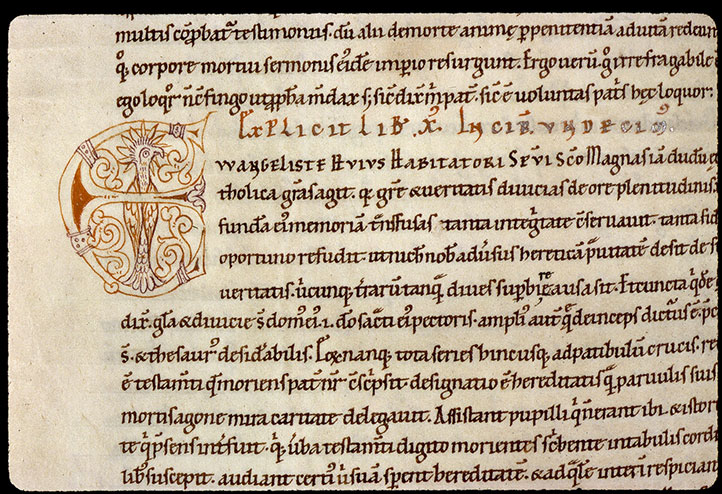 multis cōp̄bat̄ testimoniis. dū alii de morte animę p penitentiā advitā redeun
q̇. corpore mortui sermonis eiđe impio resurgunt. Ergo verū. ğ irrefragabile e
ego loq̇r n̄c fingo ut ppħa m̄dax s; sic dix̄ m̄ pat̄. sic ē voluntas pat̄s hęc loquor.
EXPLICIT LIB X. INCIP UNDECIM'.
EWANGELISTE HUIUS HABITATORI SEUI SC̄O Magnas iā dudū
tholica gr̄as agit. q̇ gr̄e & veritatis divicias de ore plenitudinis
fundēa ei memoriā trānsfusas tanta inteḡtate c̄servavit. tanta fid
oportuno refudit. ut nich nob adusus hereticā pvitatē desit de
veritatis. ut cunq; trarū tanq̄ dives supbire ausa sit. Et cuncta q̄
dix̄. gl̄a & divicie s̄ domę ei. i. dō sacti ei pectoris. ampli aut q̄ deinceps dictus ē.
s̄. & thesaur desidabilis. Lox nanq; tota series hinc usq; ad patibulū crucis.
ē testamti q̄ moriens pat nr c̄scpsit. designatio ē hereditatis q̄ parvulis suis
mortis agone mira caritate delegavit. Assistant pupilli q̇ n̄erant ibi. & istor
te q̇ psens intfuit. q̇. ūba testam̄ti digito morientes sc̄bente in tabulis cordi
lib̄ suscepit. audiant certi ut suā spent hereditatē. & ad q̄le intei respician